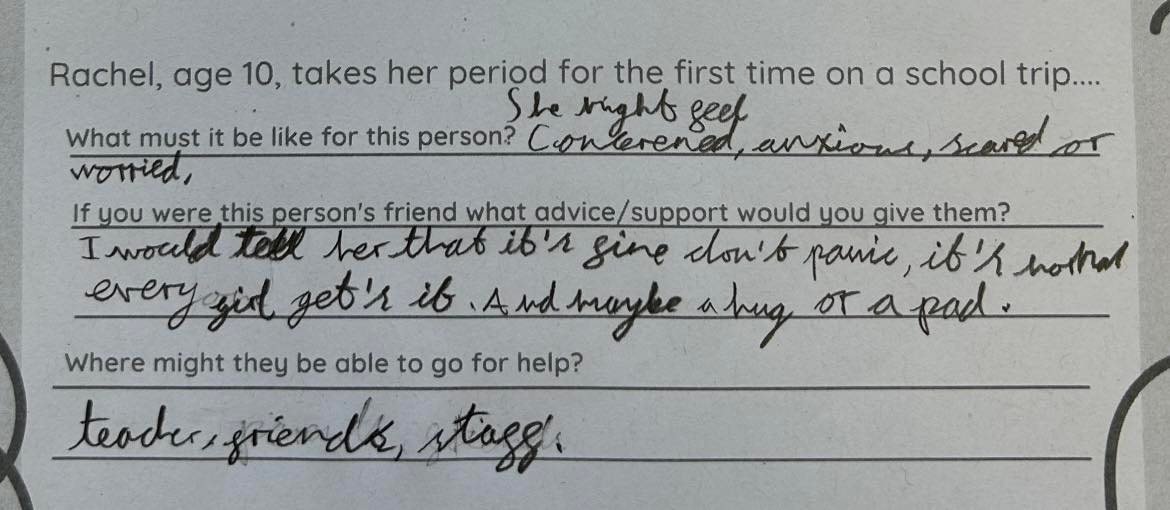 Rachel, age 10, takes her period for the first time on a school trip....
She might feel
What must it be like for this person? Concerened, anxious, scared or
worried,
If you were this person's friend what advice/support would you give them?
I would tell her that it's fine don't panic, it's normal
every girl get's it. And maybe a hug or a pad.
Where might they be able to go for help?
teacher, friends, staff.